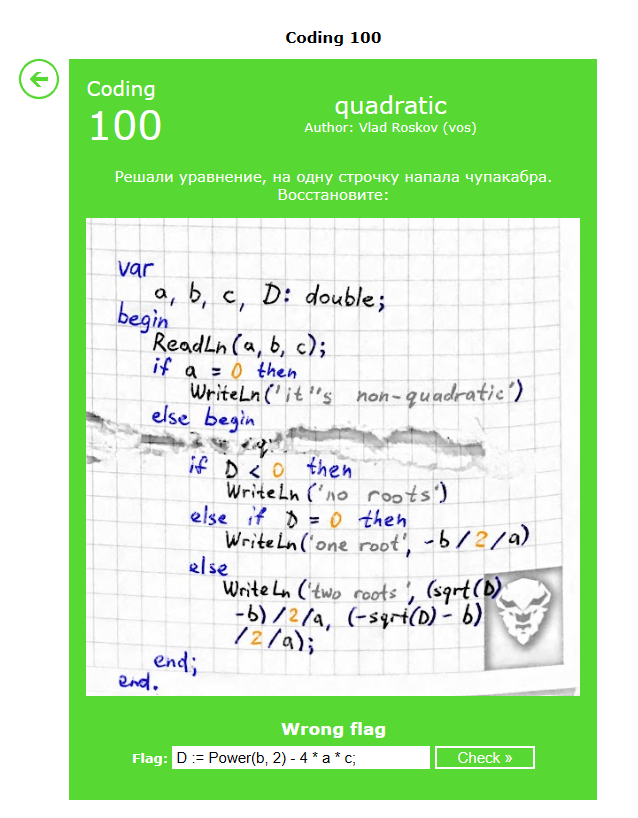 Coding 100
Coding
100
quadratic
Author: Vlad Roskov (vos)
Решали уравнение, на одну строчку напала чупакабра.
Восстановите:
var
a, b, c, D: double;
begin
ReadLn(a, b, c);
if a = 0 then
WriteLn('it''s non-quadratic')
else begin
if D < 0 then
WriteLn('no roots')
else if D = 0 then
WriteLn('one root', -b/2/a)
else
WriteLn('two roots', (sqrt(D)
-b)/2/a, (-sqrt(D)-b)
/2/a);
end;
end.
Wrong flag
Flag: D := Power(b, 2) - 4 * a * c; Check »